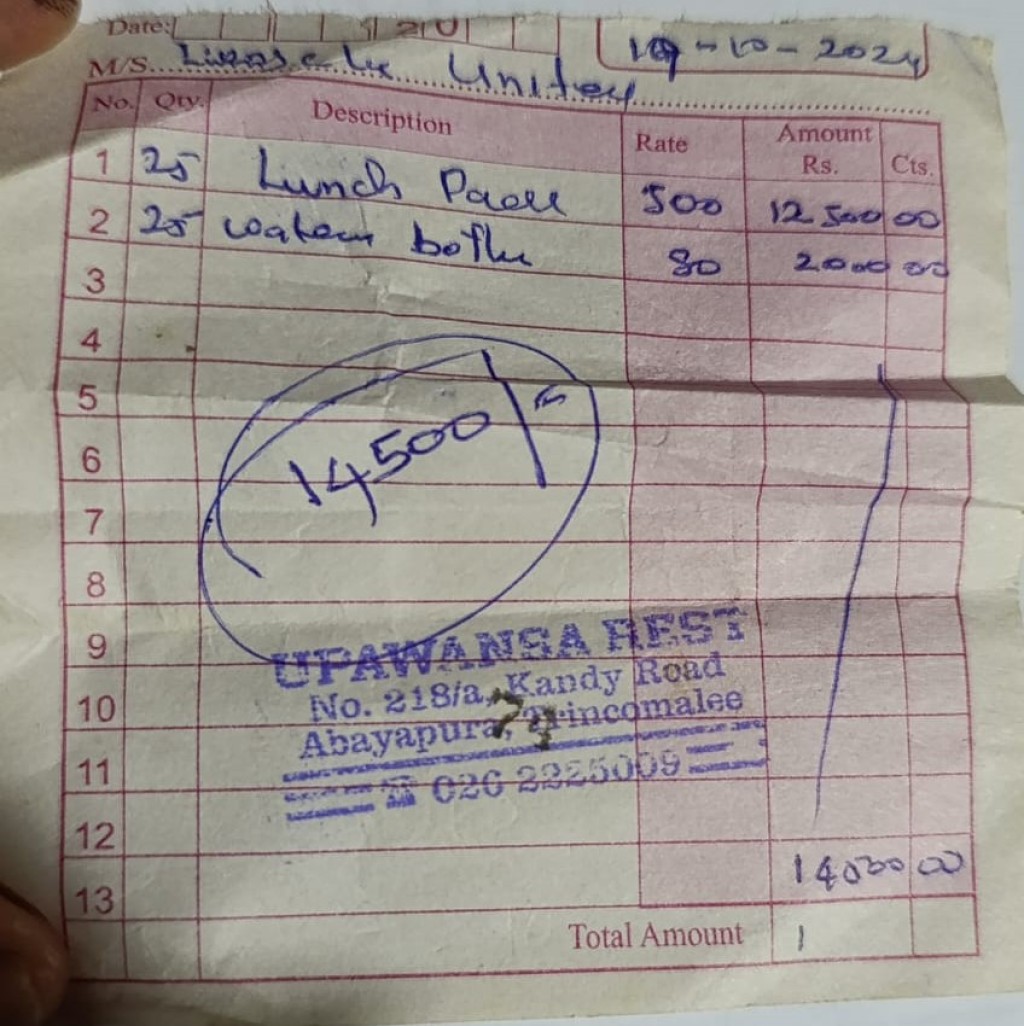 Date: 20
19-10-2024
M/S. Unitey
No. Qty. Description Rate Amount Rs. Cts.
1 25 Lunch Pack 500 12500 00
2 25 water bottle 80 2000 00
3
4
5
14500/=
6
7
8
9
UPAWANSA REST
No. 218/a, Kandy Road
10
Abayapura, Trincomalee
11
026 2225009
12
14500 00
13
Total Amount